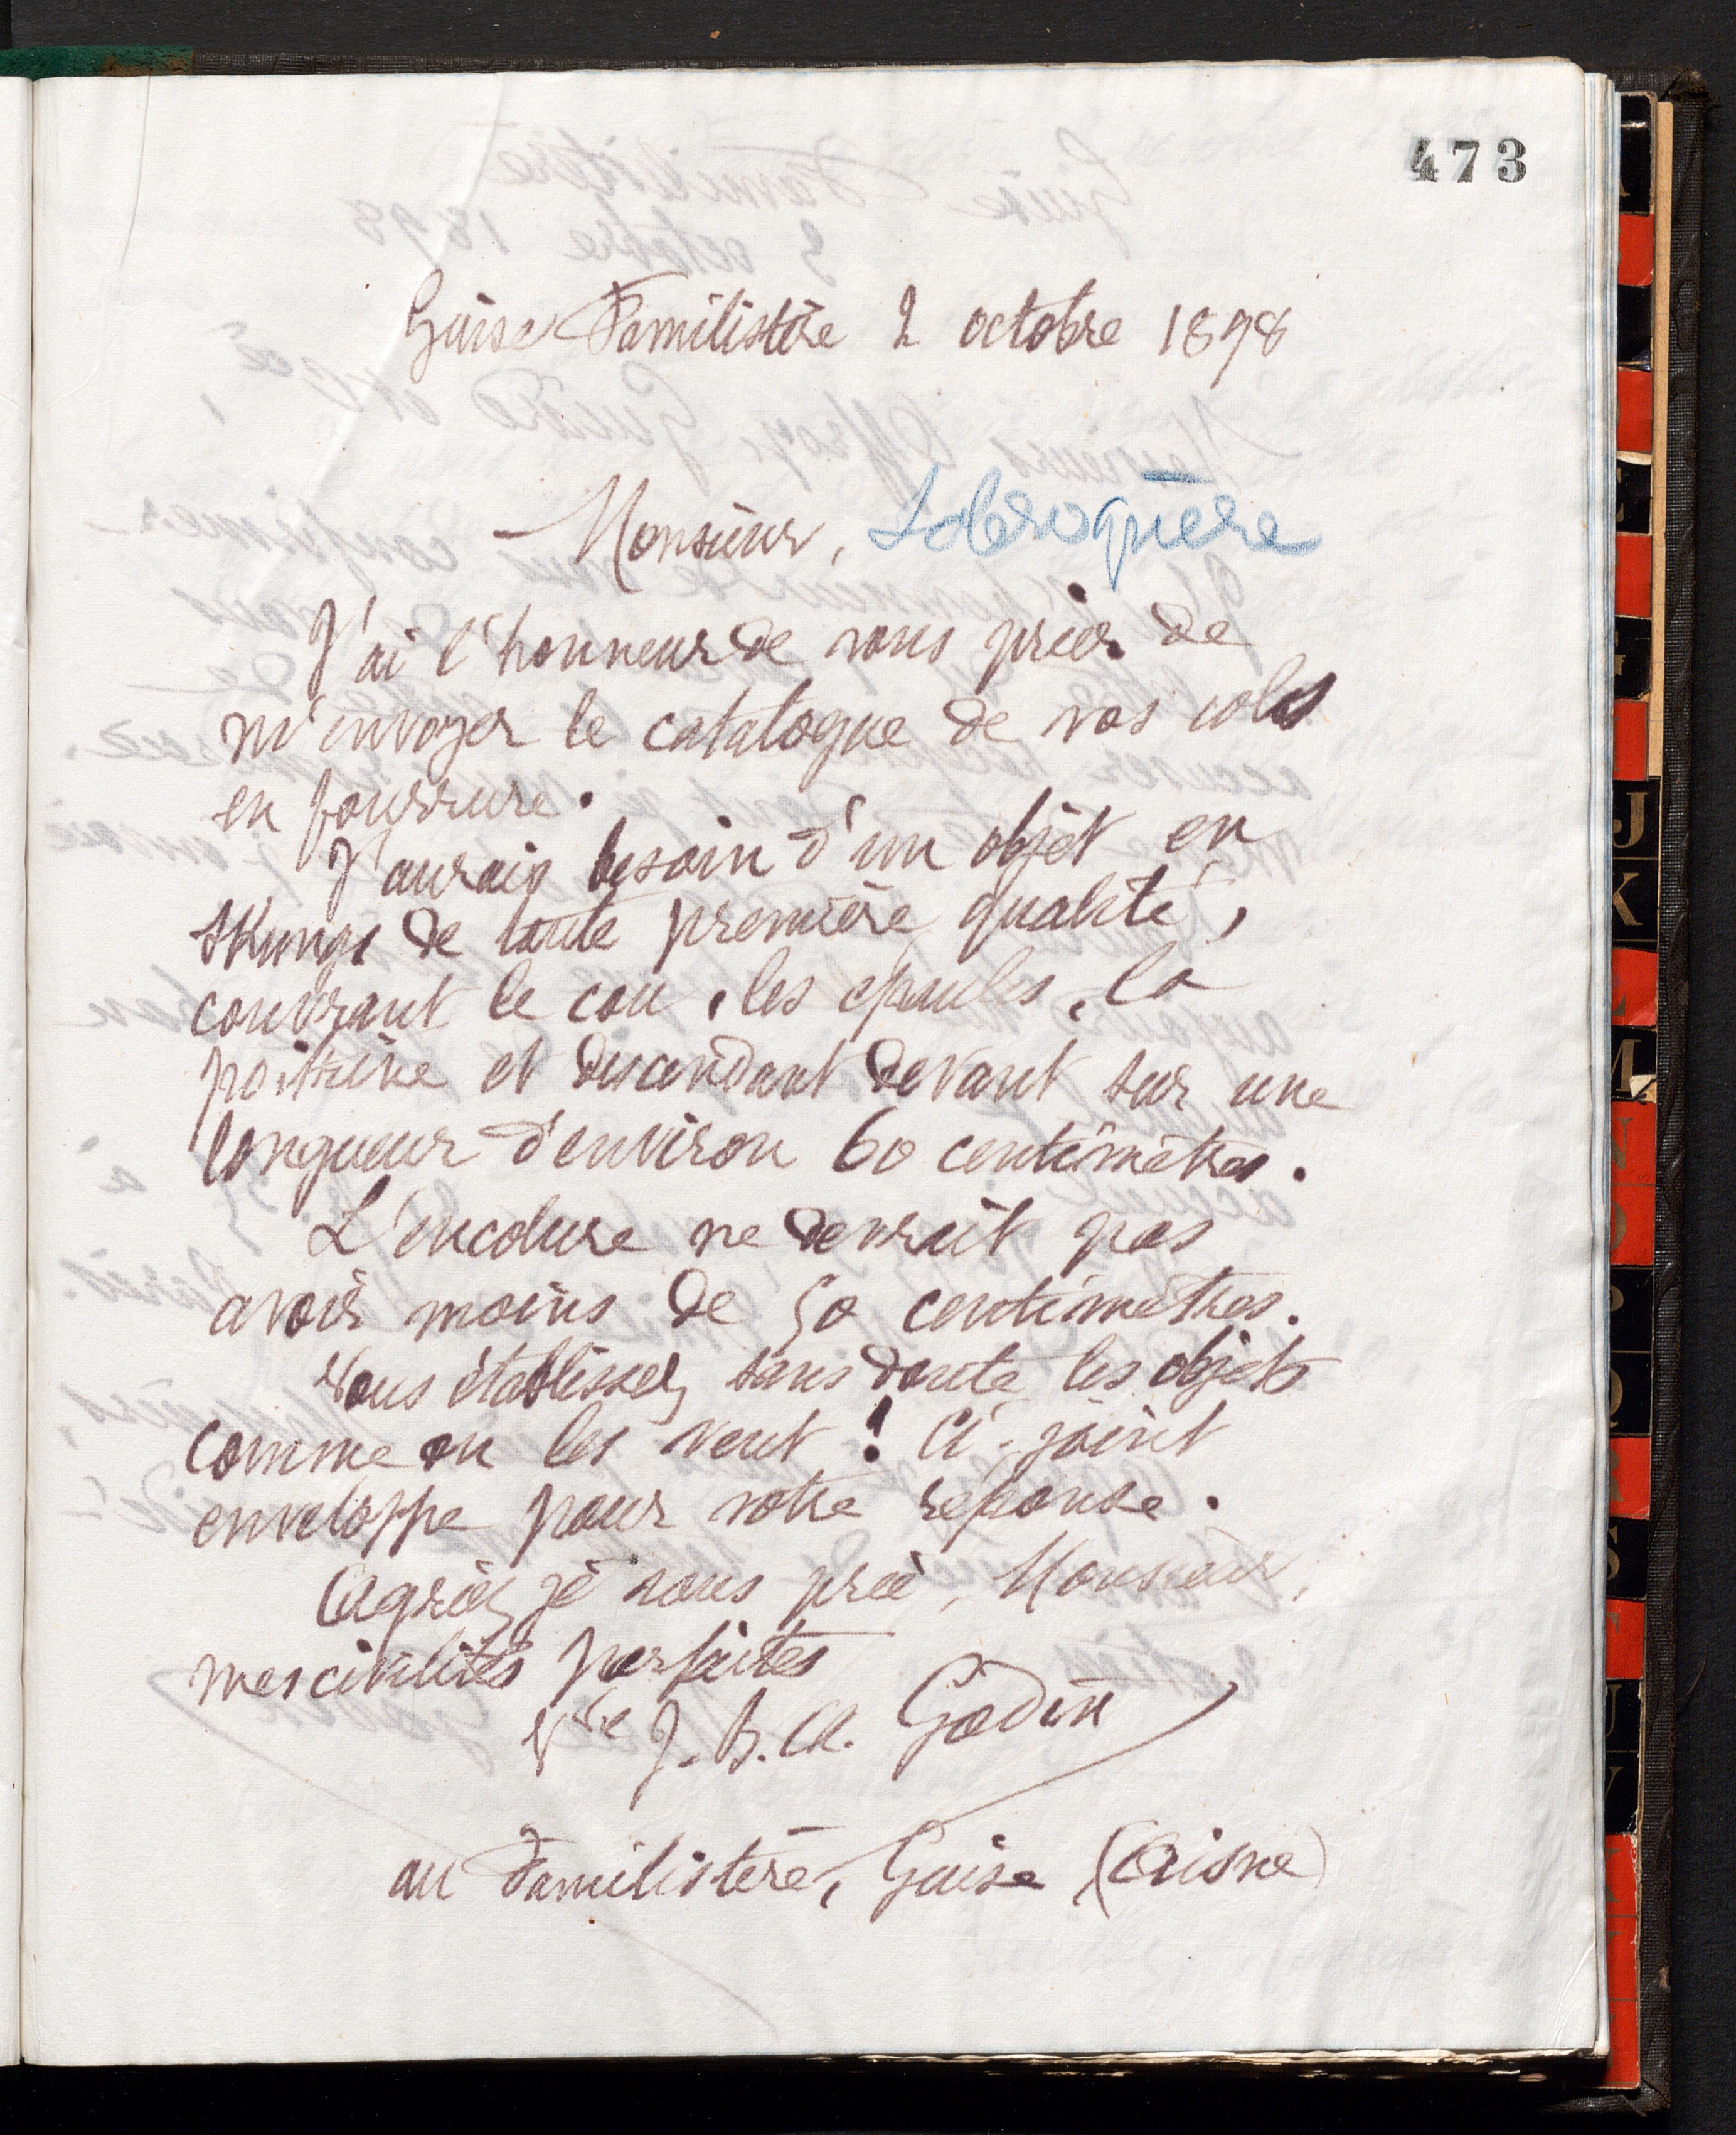 473
Guise Familistère 2 octobre 1898
Monsieur, Labroquère
J'ai l'honneur de vous prier de
m'envoyer le catalogue de vos cols
en fourrure.
J'aurais besoin d'un objet en
skungs de toute première qualité,
couvrant le cou, les épaules, la
poitrine et descendant devant sur une
longueur d'environ 60 centimètres.
L'encolure ne devrait pas
avoir moins de 50 centimètres.
Vous établissez sans doute les objets
comme on les veut ! Ci-joint
enveloppe pour votre réponse.
Agréez je vous prie, Monsieur,
mes civilités parfaites
Vve J. B. A. Godin
au Familistère, Guise (Aisne)
J
K
M